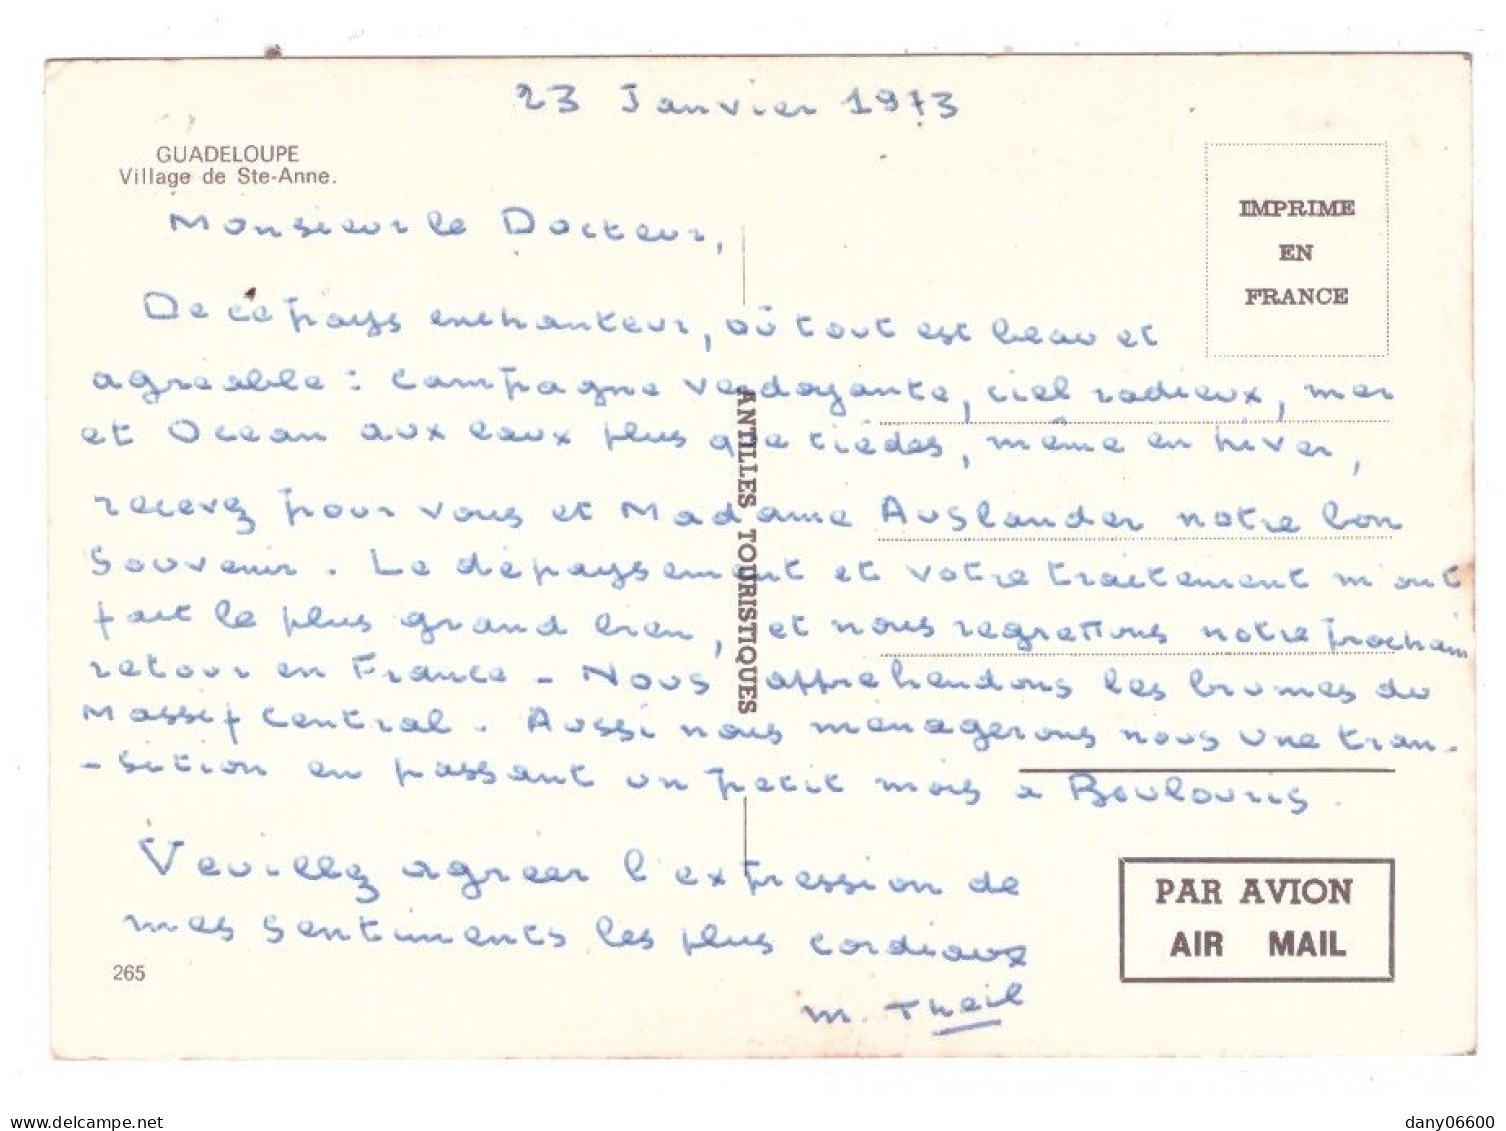 23 Janvier 1973
GUADELOUPE
Village de Ste-Anne.
IMPRIME
EN
FRANCE
Monsieur le Docteur,
De ce pays enchanteur, où tout est beau et
agréable : campagne verdoyante, ciel radieux, mer
et Ocean aux eaux plus que tièdes, même en hiver,
recevez pour vous et Madame Auslander notre bon
souvenir. Le dépaysement et votre traitement m'ont
fait le plus grand bien, et nous regrettons notre prochain
retour en France - Nous appréhendons les brumes du
Massif Central. Aussi nous ménagerons nous une tran-
-sition en passant un petit mois a Boulouris.
Veuillez agréer l'expression de
mes sentiments les plus cordiaux
M. Theil
ANTILLES TOURISTIQUES
PAR AVION
AIR MAIL
265
delcampe.net
dany06600